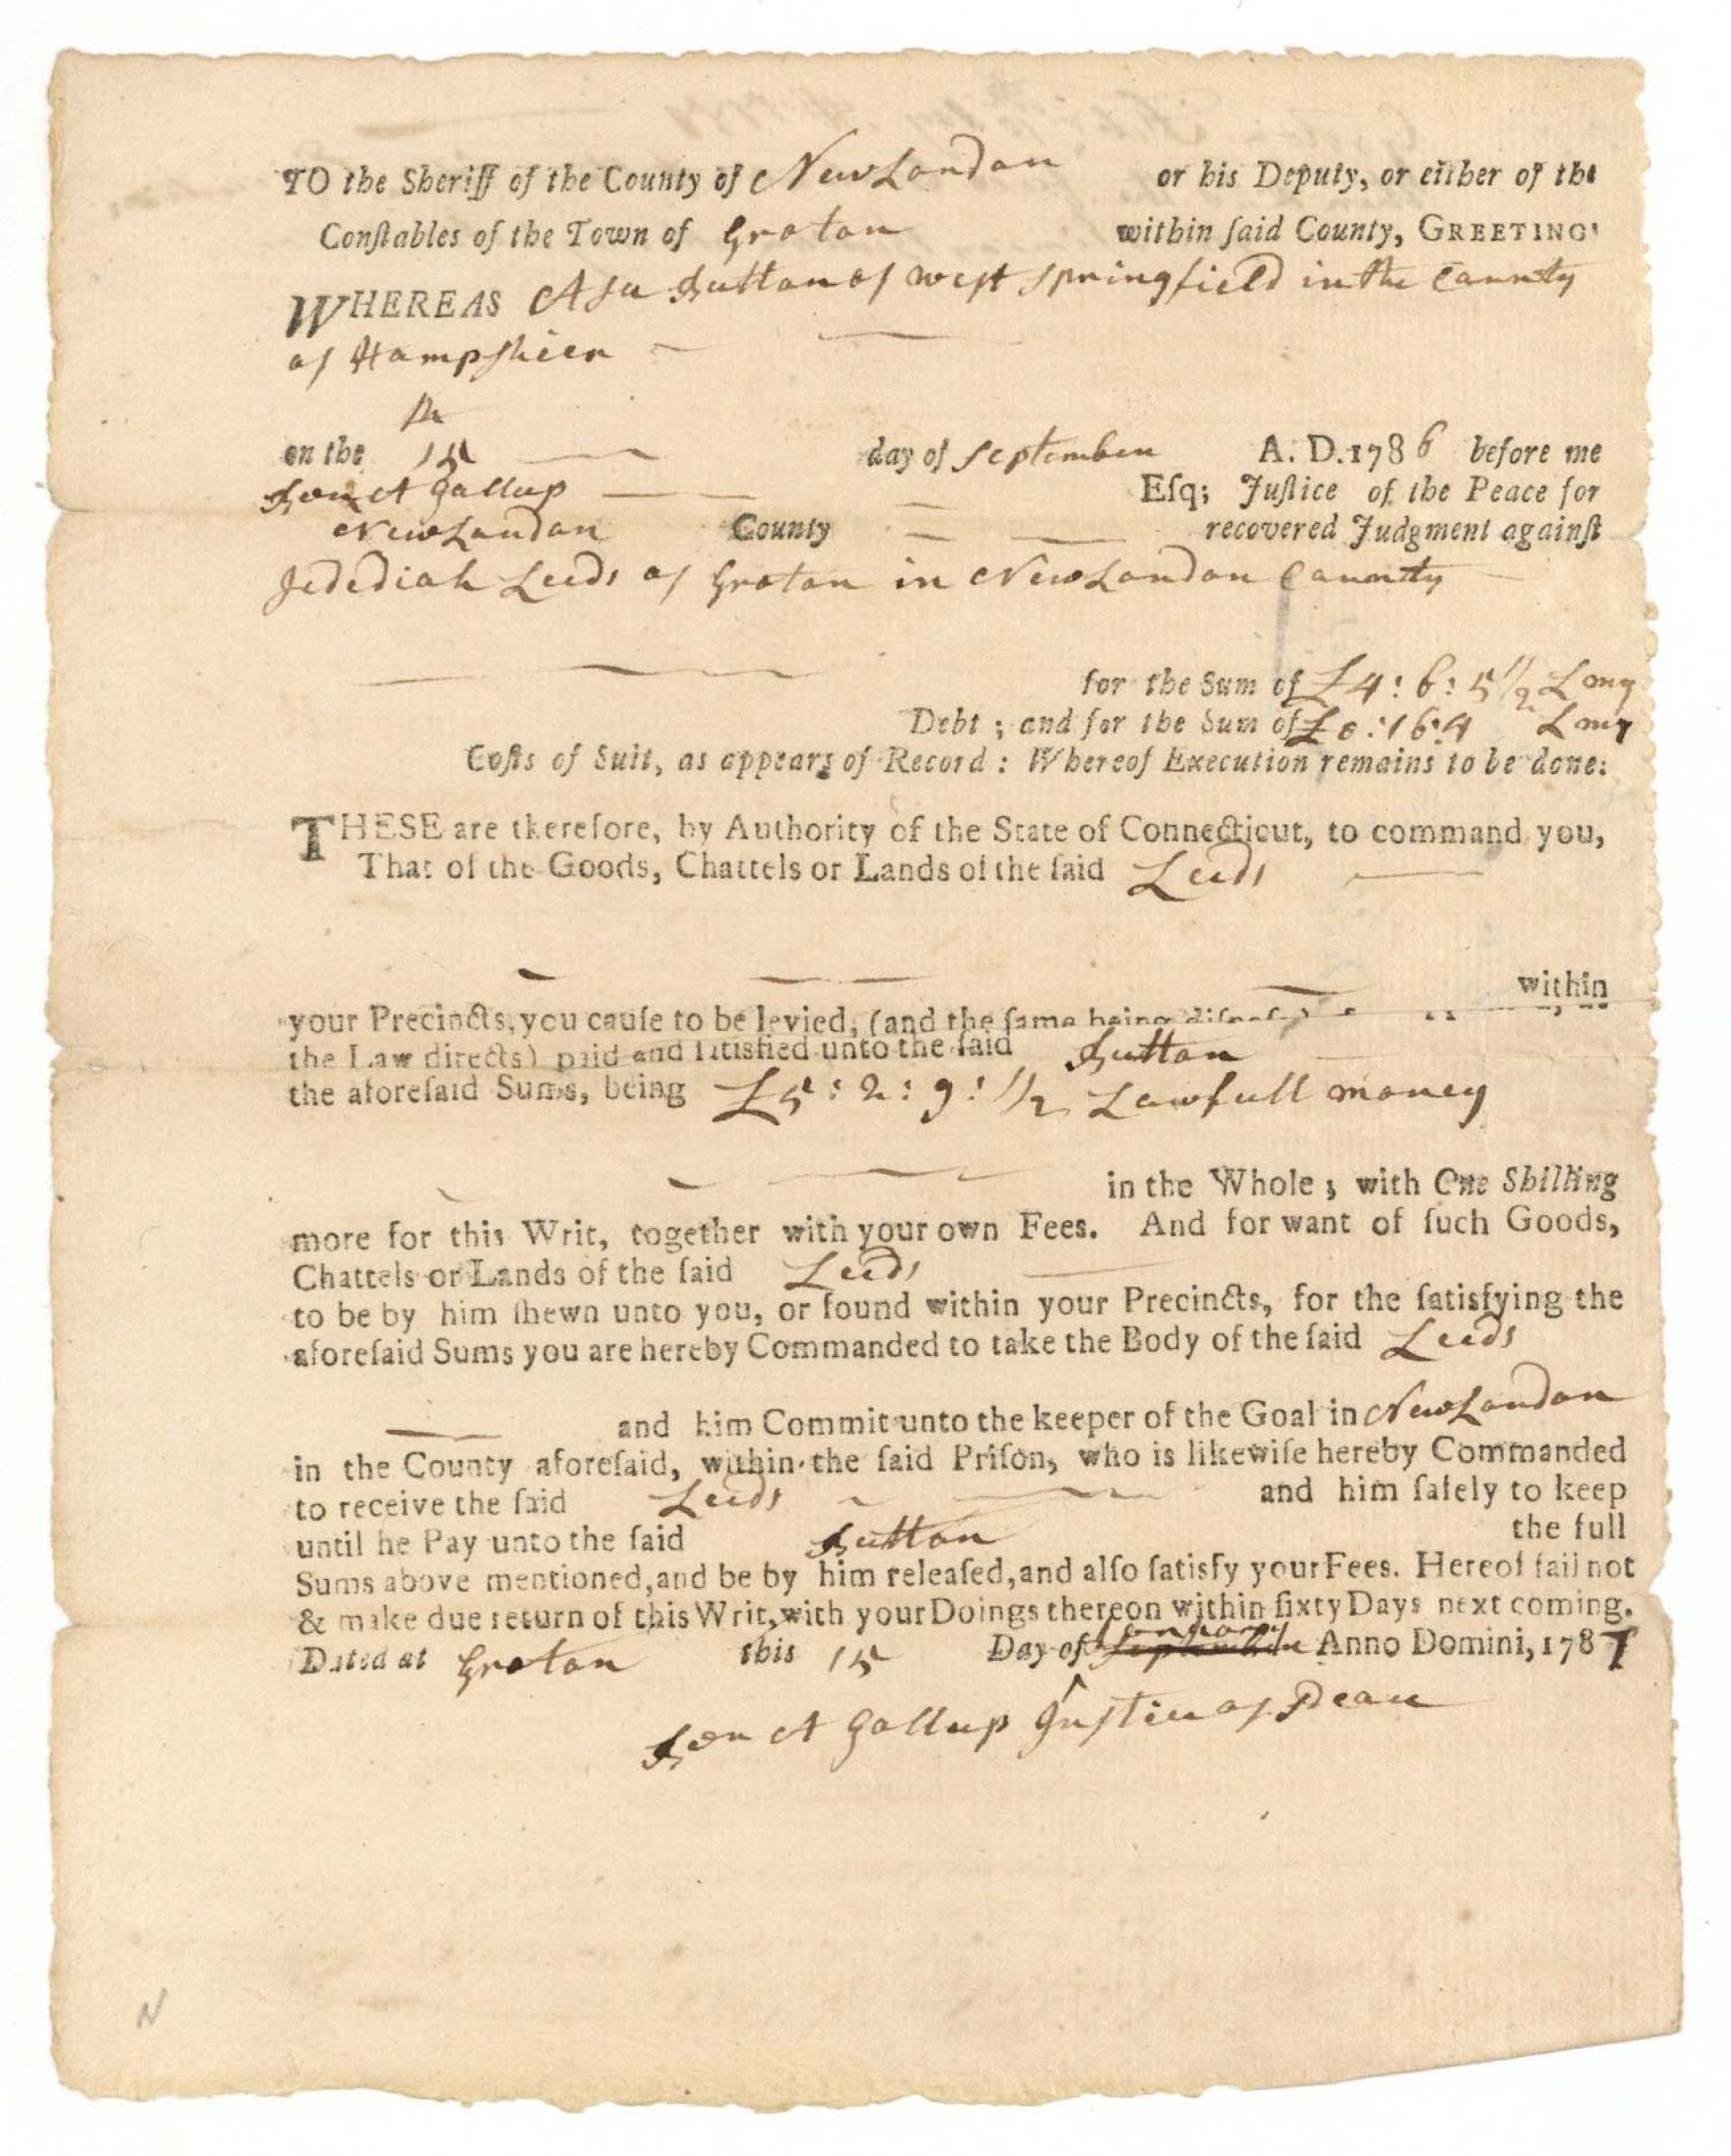 TO the Sheriff of the County of New London or his Deputy, or either of the
Conſtables of the Town of Groton within ſaid County, GREETING
WHEREAS Asa Sutton of west springfield in the County
of Hampshier
on the 15th day of September A. D. 1786 before me
Ben A Gallup Eſq; Juſtice of the Peace for
New London County recovered Judgment againſt
Jedediah Leeds of Groton in New London County
for the Sum of £4:6:5 1/2 L my
Debt; and for the Sum of £0:16:4 L my
Coſts of Suit, as appears of Record: Whereof Execution remains to be done:
THESE are therefore, by Authority of the State of Connecticut, to command you,
That of the Goods, Chattels or Lands of the ſaid Leeds
within
your Precincts, you cauſe to be levied, (and the ſame being
the Law directs) paid and ſatisfied unto the ſaid Sutton
the aforeſaid Sums, being £5:2:9:1/2 Lawfull money
in the Whole; with One Shilling
more for this Writ, together with your own Fees. And for want of ſuch Goods,
Chattels or Lands of the ſaid Leeds
to be by him ſhewn unto you, or found within your Precincts, for the ſatisfying the
aforeſaid Sums you are hereby Commanded to take the Body of the ſaid Leeds
and him Commit unto the keeper of the Goal in New London
in the County aforeſaid, within the ſaid Priſon, who is likewiſe hereby Commanded
to receive the ſaid Leeds and him ſafely to keep
until he Pay unto the ſaid Sutton the full
Sums above mentioned, and be by him releaſed, and alſo ſatisfy your Fees. Hereof fail not
& make due return of this Writ, with your Doings thereon within ſixty Days next coming.
Dated at Groton this 15 Day of September January Anno Domini, 1787
Ben A Gallup Justice of Peace
N